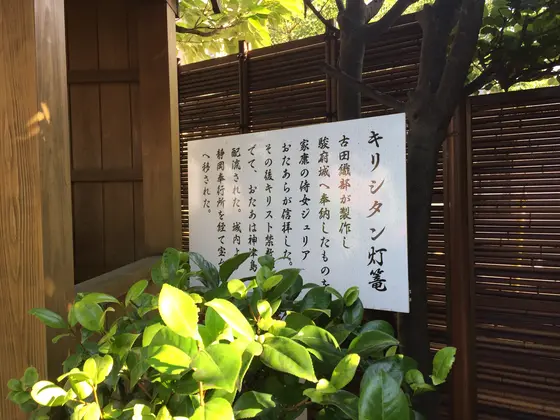 キリシタン灯篭
古田織部が製作し
駿府城へ奉納したものを
家康の侍女ジュリア
おたあらが信拝した。
その後キリスト禁
でて、おたあは神津島
配流された。城内よ
静岡奉行所を経て宝
へ移された。